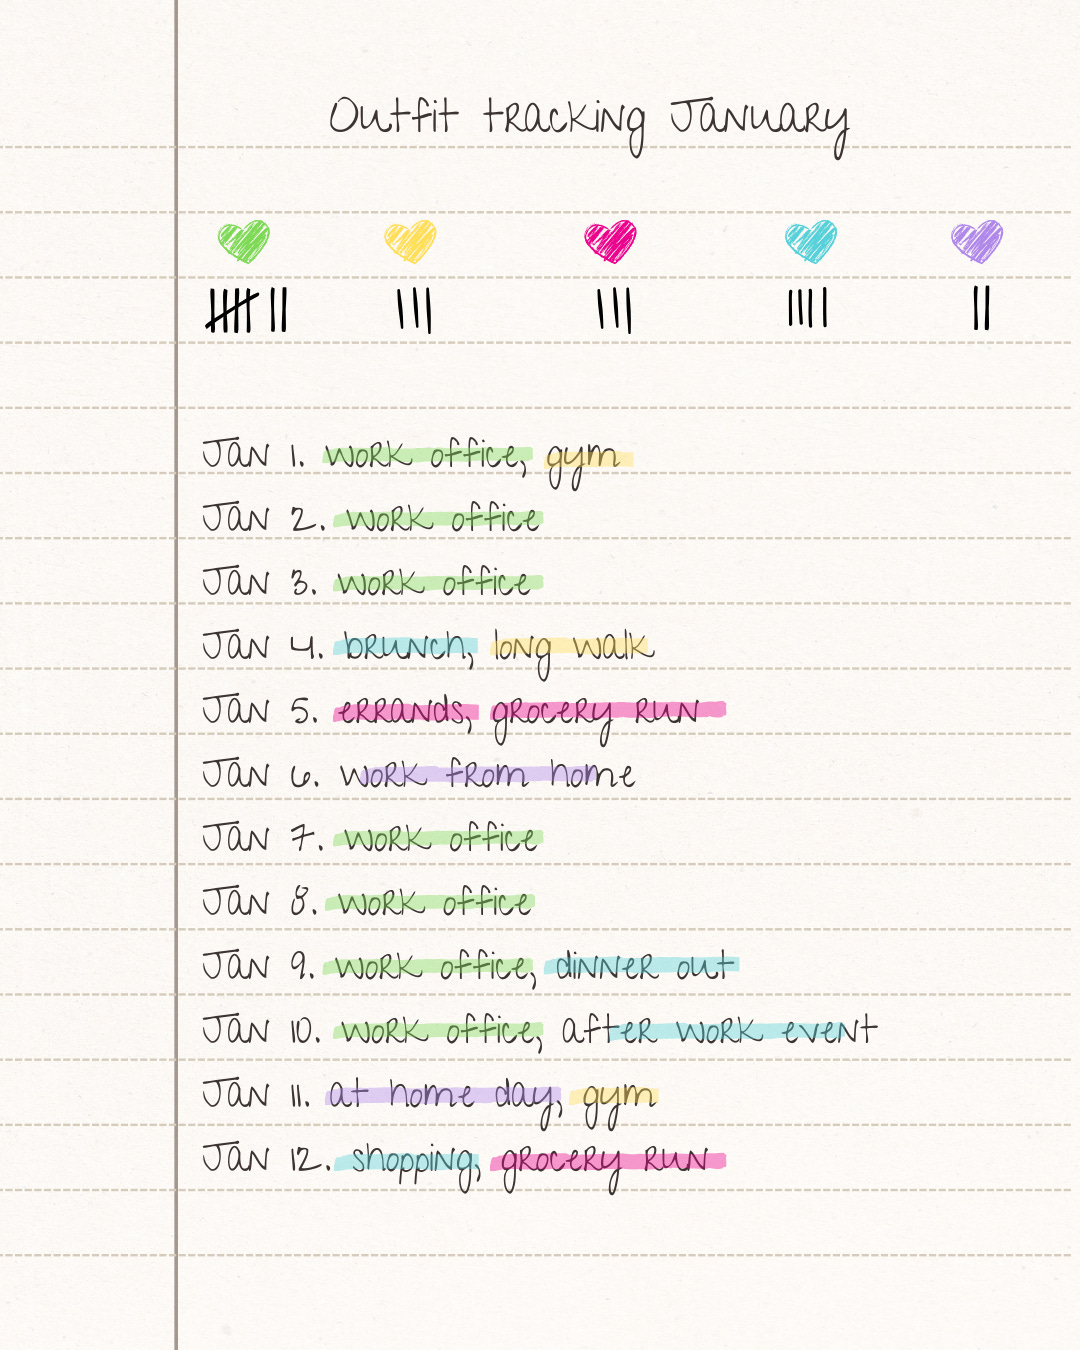 Outfit tracking January
Jan 1. work office, gym
Jan 2. work office
Jan 3. work office
Jan 4. brunch, long walk
Jan 5. errands, grocery run
Jan 6. work from home
Jan 7. work office
Jan 8. work office
Jan 9. work office, dinner out
Jan 10. work office, after work event
Jan 11. at home day, gym
Jan 12. shopping, grocery run